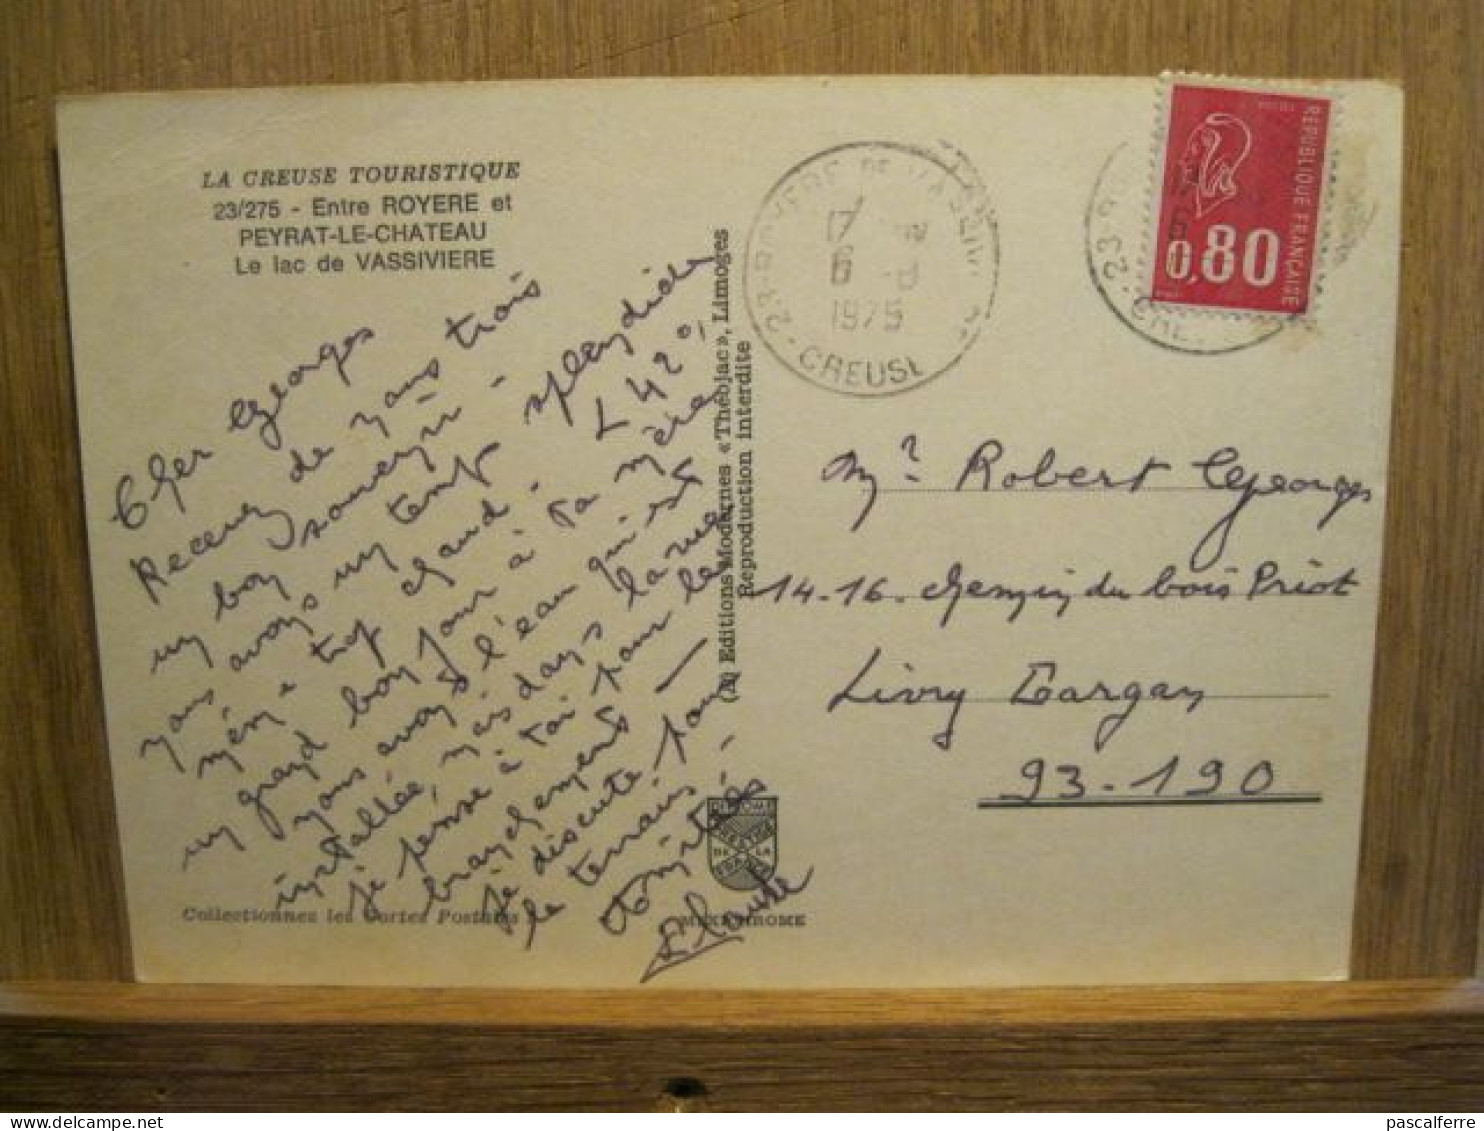 LA CREUSE TOURISTIQUE
23/275 - Entre ROYERE et
PEYRAT-LE-CHATEAU
Le lac de VASSIVIERE
Cher Georges
Recevez de nous trois
un bon souvenir -
nous avons un temps splendide
même trop chaud. L 42°,
un grand bonjour à ta mère
nous avons l'eau qui est
installée, mais dans la rue
je pense à toi pour les
branchements —
je discute pour
le terrain -
Amitiés
Claude
Collectionnez les Cartes Postales
MEXICHROME
(R) Editions Modernes «Théojac», Limoges
Reproduction interdite
23-ROYERE DE VASSIVIERE
17
6 -8
1975
CREUSE
23-
REPUBLIQUE FRANÇAISE
0,80
Mr Robert Georges
14-16- chemin du bois Priot
Livry Gargan
93-190
pascalferre